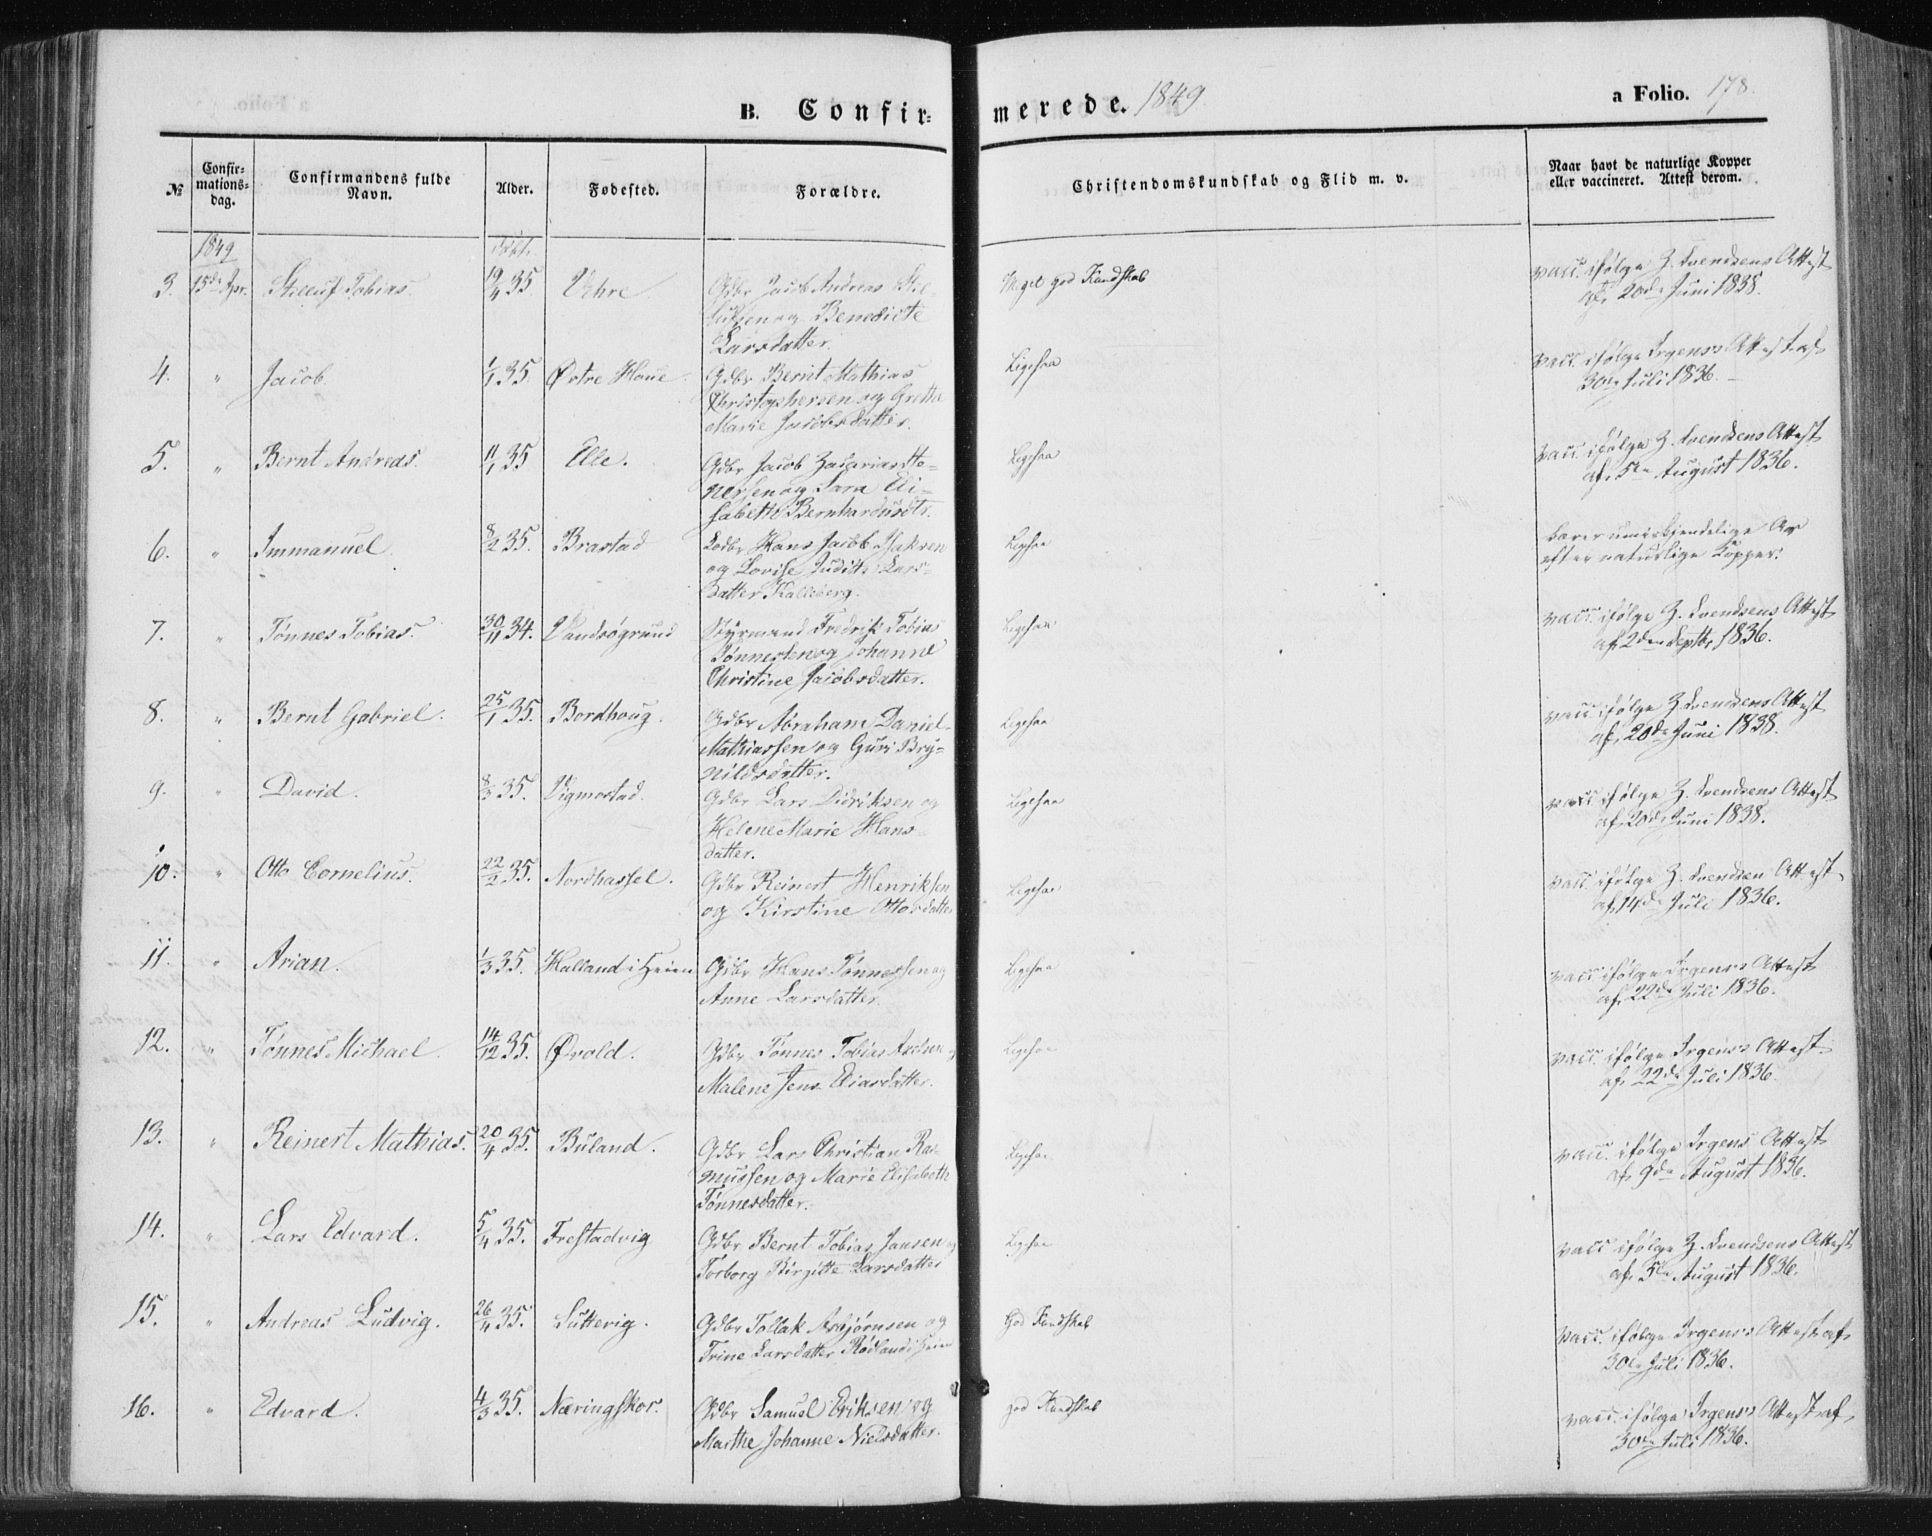 B. Confir- merede. 1849 a Folio. 178.
№ Confir-mations-dag. Confirmandens fulde Navn. Alder. Fødested. Forældre. Christendomskundskab og Flid m. v. Naar havt de naturlige Kopper eller vaccineret. Attest derom.
1849
3. 15de Apr. Tobias. 19/4 35 Vehre. Gdbr Jacob Andreas Meget god Kundskab vacc. ifølge Z. Svendsens Attest
og Benedicte af 20de Juni 1838.
Larsdatter.
4. " Jacob 1/1 35. Østre Haue. Gdbr Bernt Mathias Ligesaa vacc. ifølge Irgens's Attest af
Christophersen og Grethe 30te Juli 1836.
Marie Jacobsdatter.
5. " Bernt Andreas. 11/1 35 Elle. Gdbr Jacob Zacarias Ste- Ligesaa vacc. ifølge Z. Svendsens Attest
nersen og Sara Eli- af 5te August 1836.
sabeth Bernhardusdtr.
6. " Immanuel. 8/2 35. Brastad Gdbr Hans Jacob Isaksen Ligesaa bærer umiskjendelige Ar
og Lovise Judithe Lars- efter naturlige Kopper.
datter Kalleberg.
7. " Tønnes Tobias. 30/11 34. Vandsøgrund Styrmand Fredrik Tobias Ligesaa vacc. ifølge Z. Svendsens Attest
Tønnessen og Johanne af 2den Septbr 1836.
Christine Jacobsdatter.
8. " Bernt Gabriel. 25/1 35. Bordhoug. Gdbr Abraham Daniel Ligesaa vacc. ifølge Z. Svendsens Attest
Mathiassen og Guri Bry- af 20de Juni 1838.
nildsdatter.
9. " David. 8/3 35. Vigmostad. Gdbr Lars Didriksen og Ligesaa vacc. ifølge Z. Svendsens Attest
Helene Marie Hans- af 20de Juni 1838.
datter.
10. " Otto Cornelius. 22/2 35. Nordhassel. Gdbr Reinert Henriksen Ligesaa vacc. ifølge Z. Svendsen Attest
og Kirstine Ottosdatter af 14de Juli 1836.
11. " Arian. 1/3 35. Halland i Heien Gdbr Hans Tønnessen og Ligesaa vacc. ifølge Irgens's Attest
Anne Larsdatter. af 22de Juli 1836.
12. " Tønnes Michael. 14/12 35. Øvold. Gdbr Tønnes Tobias Axelsen og Ligesaa vacc. ifølge Irgens's Attest
Malene Jens Eliasdatter. af 22de Juli 1836.
13. " Reinert Mathias. 20/4 35. Büland. Gdbr Lars Christian Ras- Ligesaa vacc. ifølge Irgens Attest
mussen og Marie Elisabeth af 9de August 1836.
Tønnesdatter.
14. " Lars Edvard. 5/4 35. Frestadvig Gdbr Bernt Tobias Jansen og Ligesaa vacc. ifølge Z. Svendsens Attest
Torborg Birgitte Larsdatter af 5te August 1836.
15. " Andreas Ludvig. 26/4 35. Lüttevig. Gdbr Tollak Asbjørnsen og God Kundskab vacc. ifølge Irgens's Attest af
Trine Larsdatter Rødland i Heien 30te Juli 1836.
16. " Edvard. 4/3 35. Næringskor. Gdbr Samuel Eriksen og god Kundskab vacc. ifølge Irgens's Attest af
Marthe Johanne Nielsdatter. 30te Juli 1836.